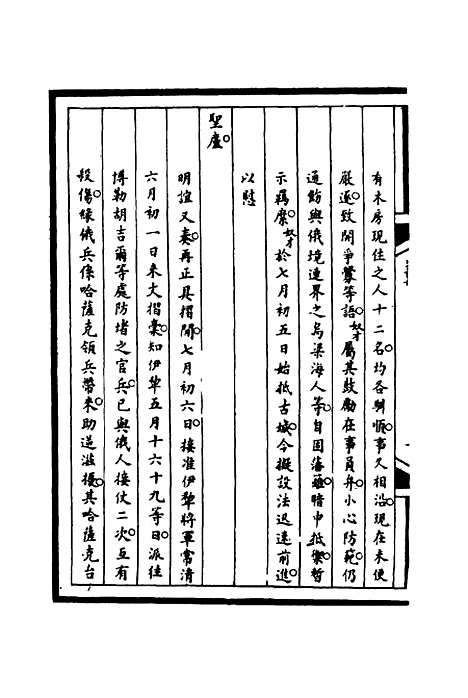 有木房現住之人十二名均各馴順事久相沿現在未便
嚴逐致開爭釁等語奴才屬其鼓勵在事員弁小心防範仍
通飭與俄境連界之烏梁海人等自固藩籬暗中抵禦暫
示羈縻奴才於七月初五日始抵古城今擬設法迅速前進
以慰
聖廑
明誼又奏再正具摺間七月初六日接准伊犂將軍常清
六月初一日來文摺稾知伊犂五月十六十九等日派往
博勒胡吉爾等處防堵之官兵已與俄人接仗二次互有
殺傷緣俄兵係哈薩克領兵帶來助逆滋擾其哈薩克台